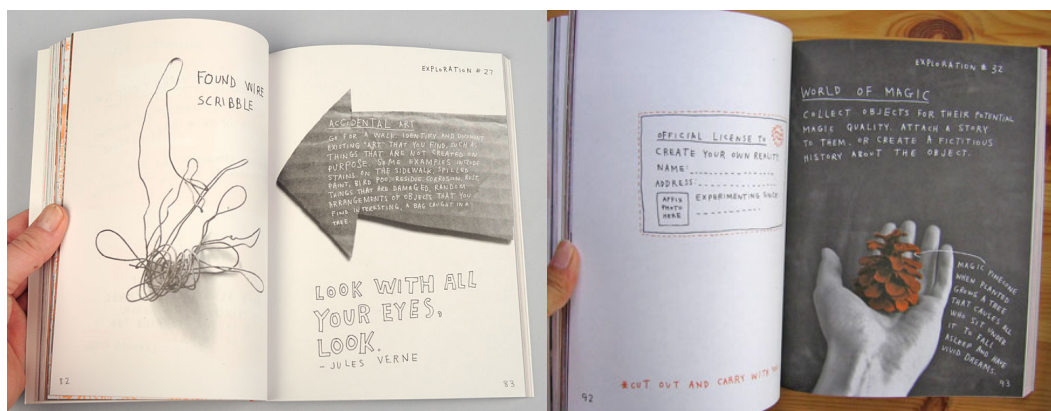 FOUND WIRE
SCRIBBLE
82
EXPLORATION #27
ACCIDENTAL ART
GO FOR A WALK. IDENTIFY AND DOCUMENT
EXISTING "ART" THAT YOU FIND, SUCH AS
THINGS THAT ARE NOT CREATED ON
PURPOSE. SOME EXAMPLES INCLUDE
STAINS ON THE SIDEWALK, SPILLED
PAINT, BIRD POO, RESIDUE, CORROSION, RUST,
THINGS THAT ARE DAMAGED, RANDOM
ARRANGEMENTS OF OBJECTS THAT YOU
FIND INTERESTING, A BAG CAUGHT IN A
TREE.
LOOK WITH ALL
YOUR EYES,
LOOK.
- JULES VERNE
83
OFFICIAL LICENSE TO
CREATE YOUR OWN REALITY
NAME:
ADDRESS:
AFFIX
PHOTO
HERE
EXPERIMENTING SINCE
*CUT OUT AND CARRY WITH
92
EXPLORATION #32
WORLD OF MAGIC
COLLECT OBJECTS FOR THEIR POTENTIAL
MAGIC QUALITY. ATTACH A STORY
TO THEM, OR CREATE A FICTITIOUS
HISTORY ABOUT THE OBJECT.
MAGIC PINECONE
WHEN PLANTED
GROWS A TREE
THAT CAUSES ALL
WHO SIT UNDER
IT TO FALL
ASLEEP AND HAVE
VIVID DREAMS.
93